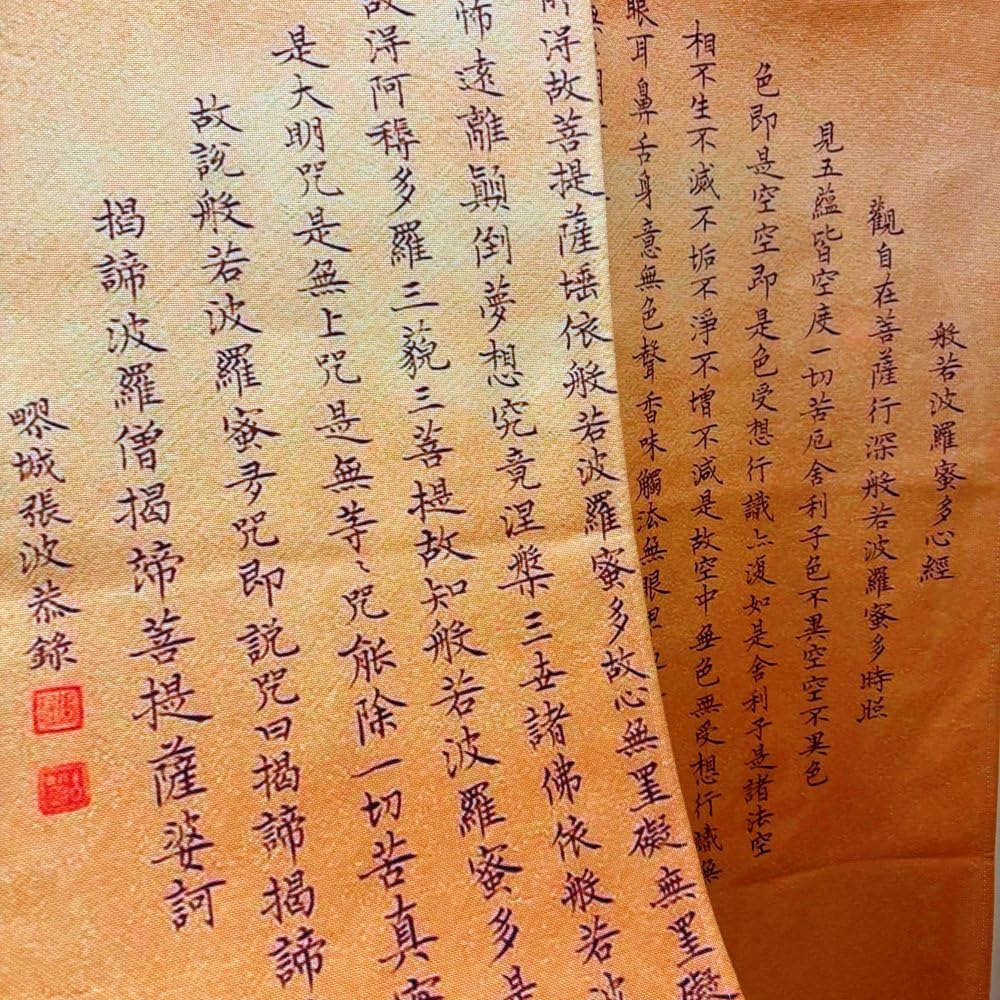 般若波羅蜜多心經
觀自在菩薩行深般若波羅蜜多時照
見五蘊皆空度一切苦厄舍利子色不異空空不異色
色即是空空即是色受想行識亦復如是舍利子是諸法空
相不生不滅不垢不淨不增不減是故空中無色無受想行識無
眼耳鼻舌身意無色聲香味觸法無眼界
所得故菩提薩埵依般若波羅蜜多故心無罣礙無罣礙
怖遠離顛倒夢想究竟涅槃三世諸佛依般若波
故得阿耨多羅三藐三菩提故知般若波羅蜜多是
是大明咒是無上咒是無等〻咒能除一切苦真實
故說般若波羅蜜多咒即說咒曰揭諦揭諦
揭諦波羅僧揭諦菩提薩婆訶
疁城張波恭錄